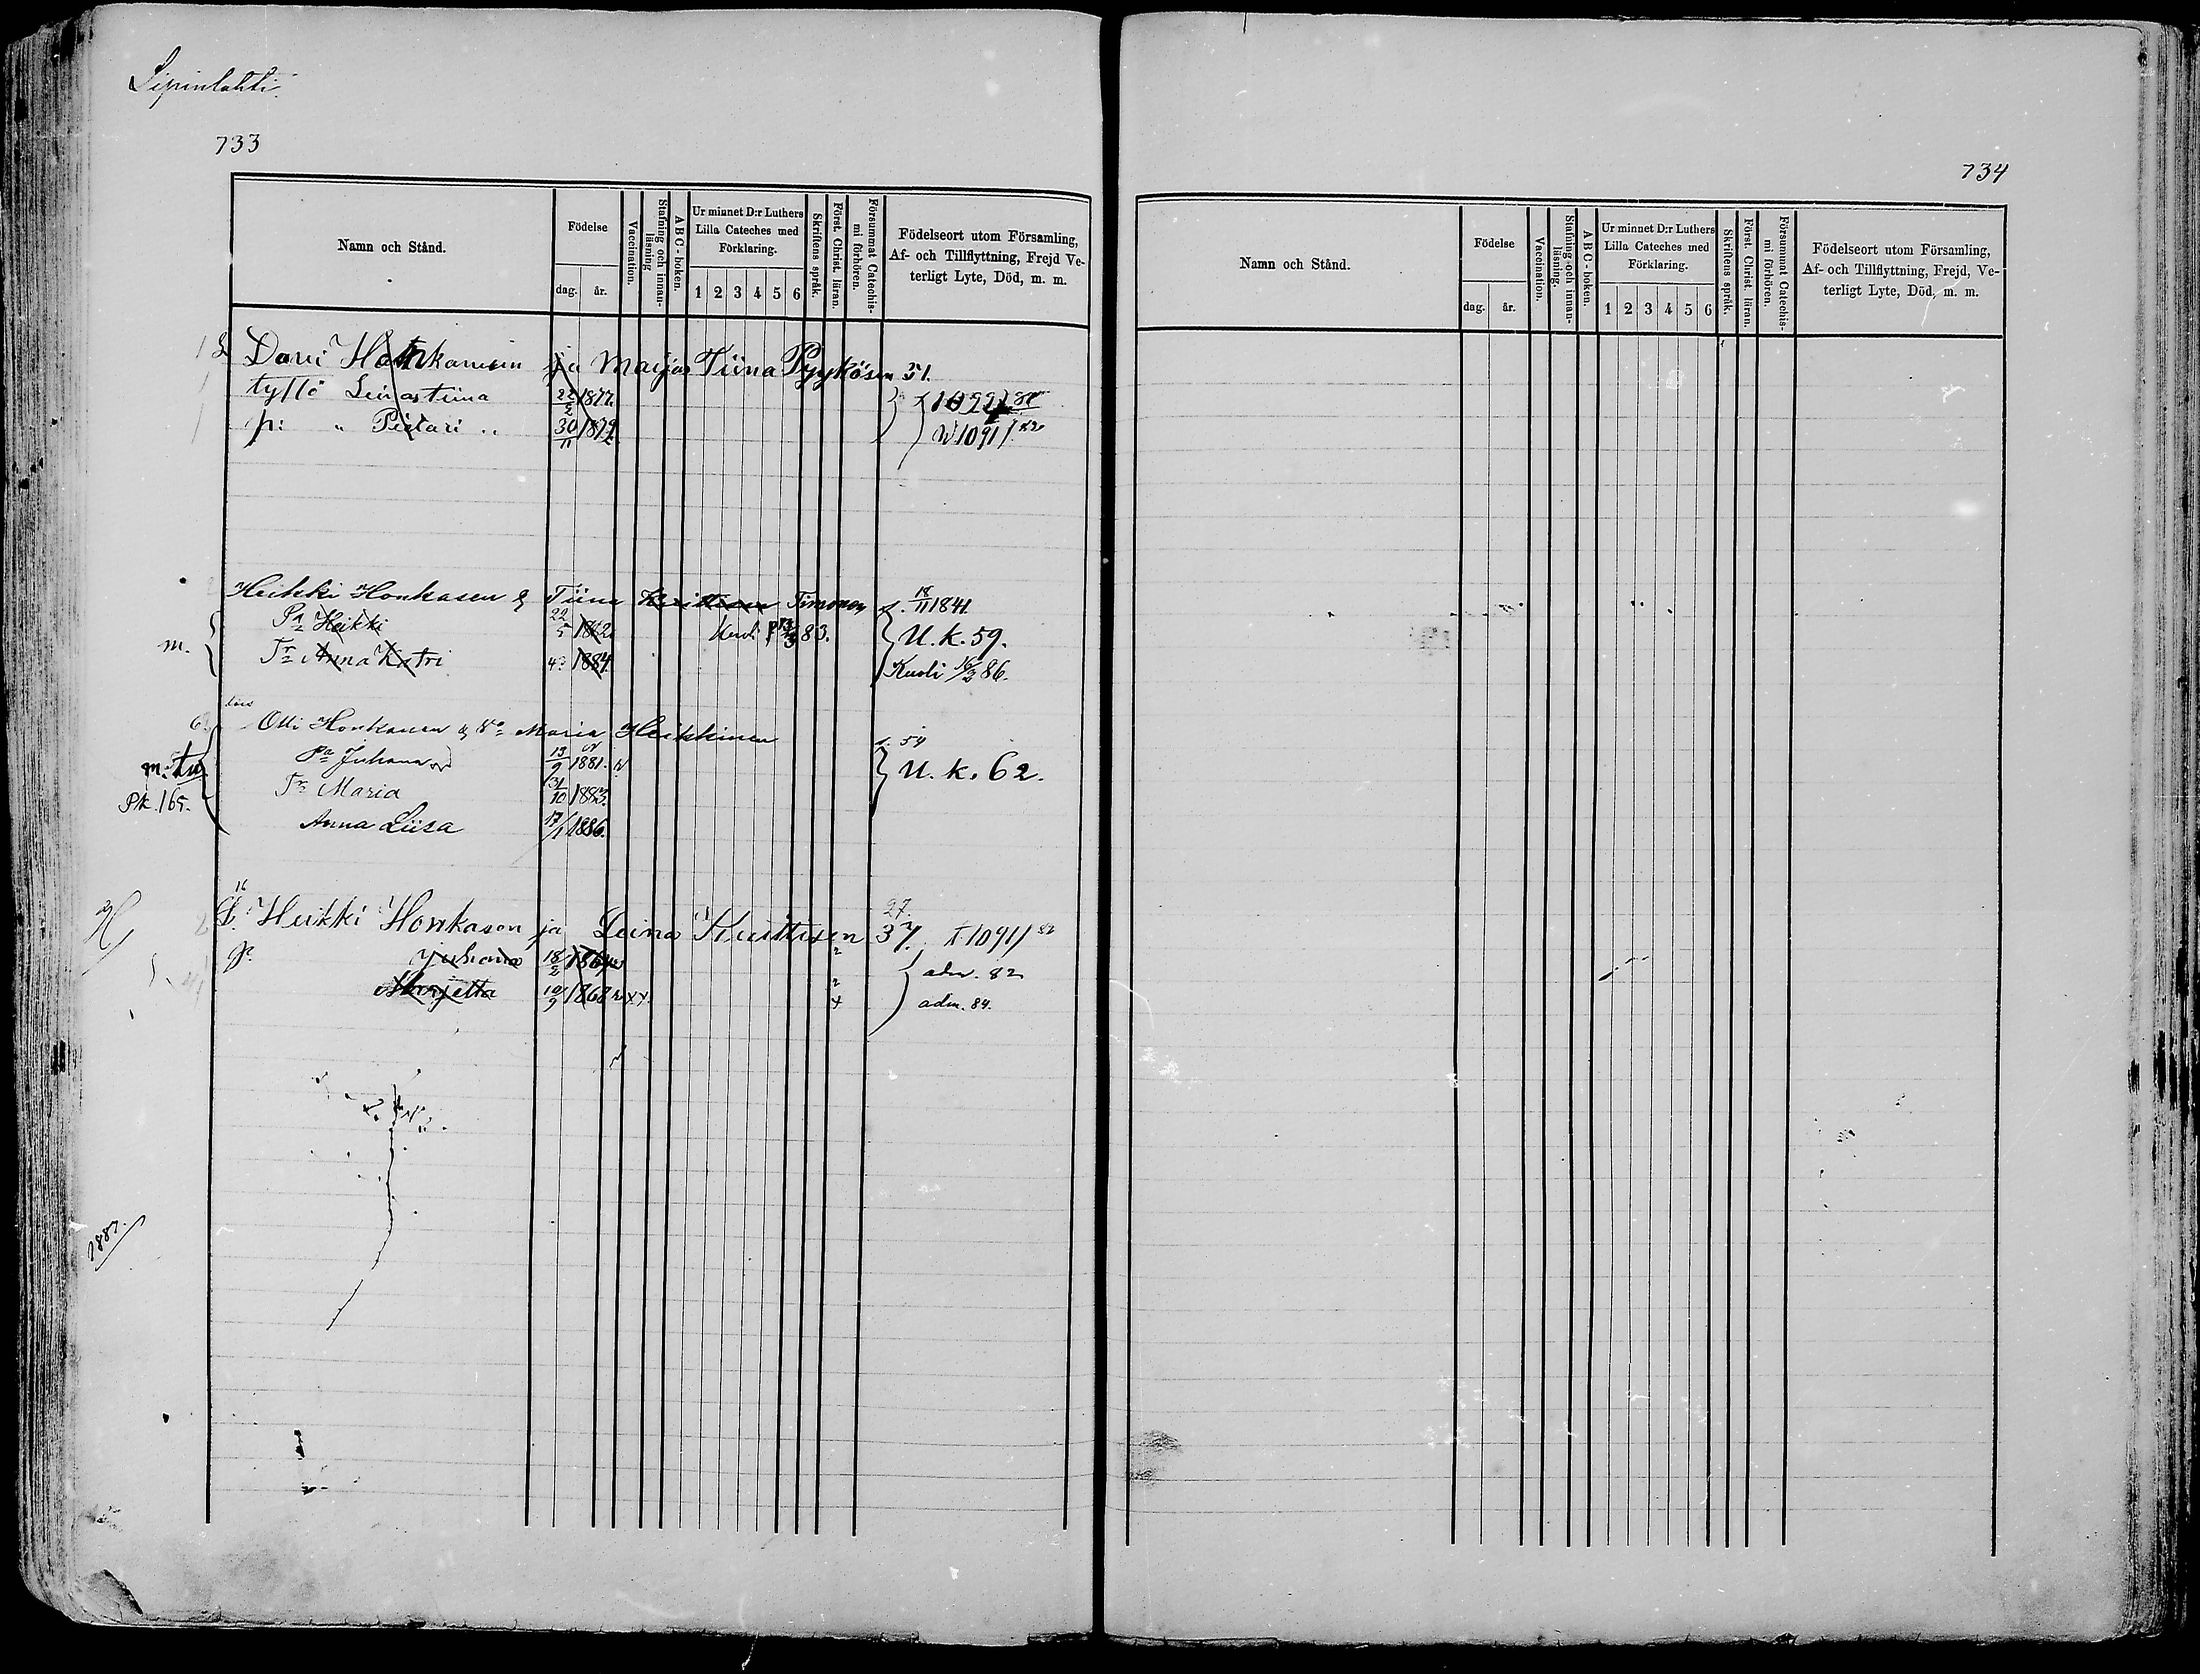 Sipinlahti.
733
Namn och Stånd.
Födelse
dag.
år.
Vaccination.
Stafning och innan-
läsning
ABC-boken.
Ur minnet D:r Luthers
Lilla Cateches med
Förklaring.
1 2 3 4 5 6
Skriftens språk.
Först. Christ. läran.
Försummat Catechis-
mi förhören.
Födelseort utom Församling,
Af- och Tillflyttning, Frejd Ve-
terligt Lyte, Död, m. m.
Honkanen ja Maija Tiina Pyykösen 51.
tyttö 22/2 1877.
p: „ Pietari „ 30/11 1879 1091/82
Heikki Honkasen & Tiina Timonen f. 18/11 1841.
m. Pa Heikki 22/5 1882 Kuoli 83. U. k. 59.
Tr Anna Katri 1884. Kuoli 16/2 86.
Olli Honkanen & Vo Maria Heikkinen f. 59
Pa Juhana 13/9 1881. U. k. 62.
Pk. 165. Tr Maria 31/10 1883.
Anna Liisa 17/1 1886.
16 27.
L. Heikki Honkasen ja Leena Kuittisen 37. 1091/82
p. Juhana 18/2 adm. 82
Marjetta 10/9 1868 adm. 84.
734
Namn och Stånd.
Födelse
dag.
år.
Vaccination.
Stafning och innan-
läsning.
ABC-boken.
Ur minnet D:r Luthers
Lilla Cateches med
Förklaring.
1 2 3 4 5 6
Skriftens språk.
Först. Christ. läran.
Försummat Catechis-
mi förhören.
Födelseort utom Församling,
Af- och Tillflyttning, Frejd, Ve-
terligt Lyte, Död, m. m.